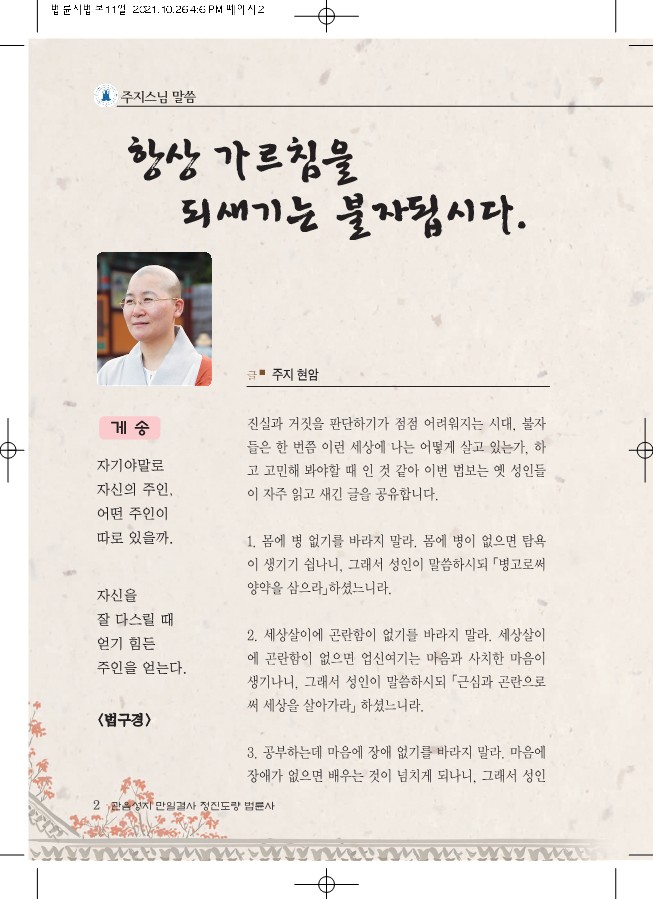 법륜사법보11월 2021.10.26 4:6 PM 페이지2
주지스님 말씀
항상 가르침을
되새기는 불자됩시다.
글 주지 현암
게 송
자기야말로
자신의 주인,
어떤 주인이
따로 있을까.
자신을
잘 다스릴 때
얻기 힘든
주인을 얻는다.
<법구경>
진실과 거짓을 판단하기가 점점 어려워지는 시대, 불자
들은 한 번쯤 이런 세상에 나는 어떻게 살고 있는가, 하
고 고민해 봐야할 때 인 것 같아 이번 법보는 옛 성인들
이 자주 읽고 새긴 글을 공유합니다.
1. 몸에 병 없기를 바라지 말라. 몸에 병이 없으면 탐욕
이 생기기 쉽나니, 그래서 성인이 말씀하시되 「병고로써
양약을 삼으라」하셨느니라.
2. 세상살이에 곤란함이 없기를 바라지 말라. 세상살이
에 곤란함이 없으면 업신여기는 마음과 사치한 마음이
생기나니, 그래서 성인이 말씀하시되 「근심과 곤란으로
써 세상을 살아가라」 하셨느니라.
3. 공부하는데 마음에 장애 없기를 바라지 말라. 마음에
장애가 없으면 배우는 것이 넘치게 되나니, 그래서 성인
2 관음성지 만일결사 정진도량 법륜사